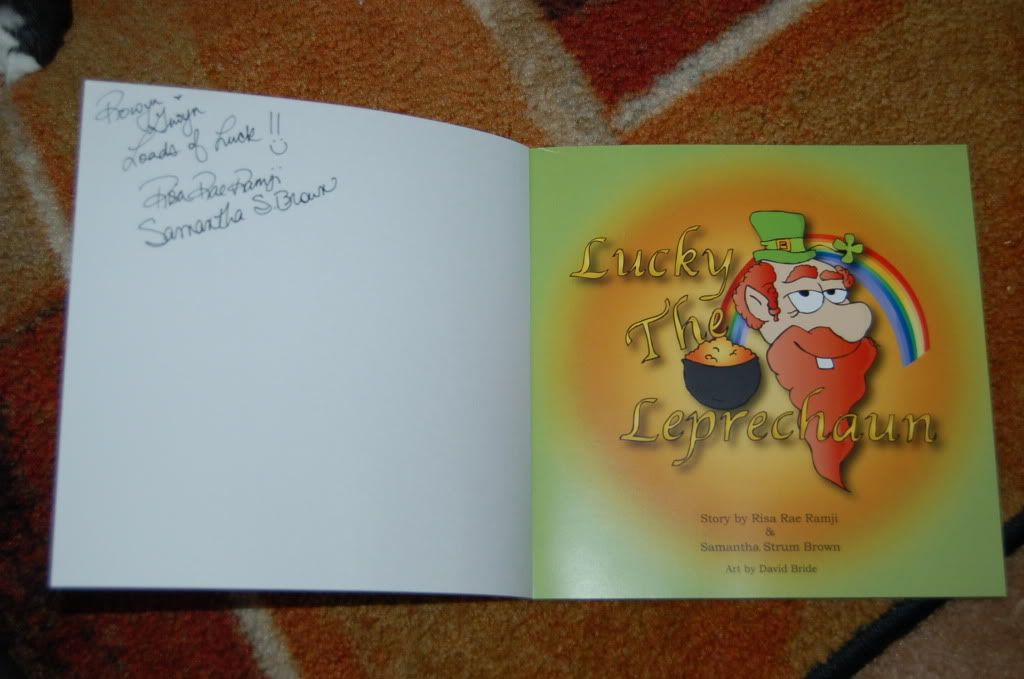 Gwyn
Loads of Luck !!
Risa Rae Ramji
Samantha S. Brown
Lucky
The
Leprechaun
Story by Risa Rae Ramji
&
Samantha Strum Brown
Art by David Bride